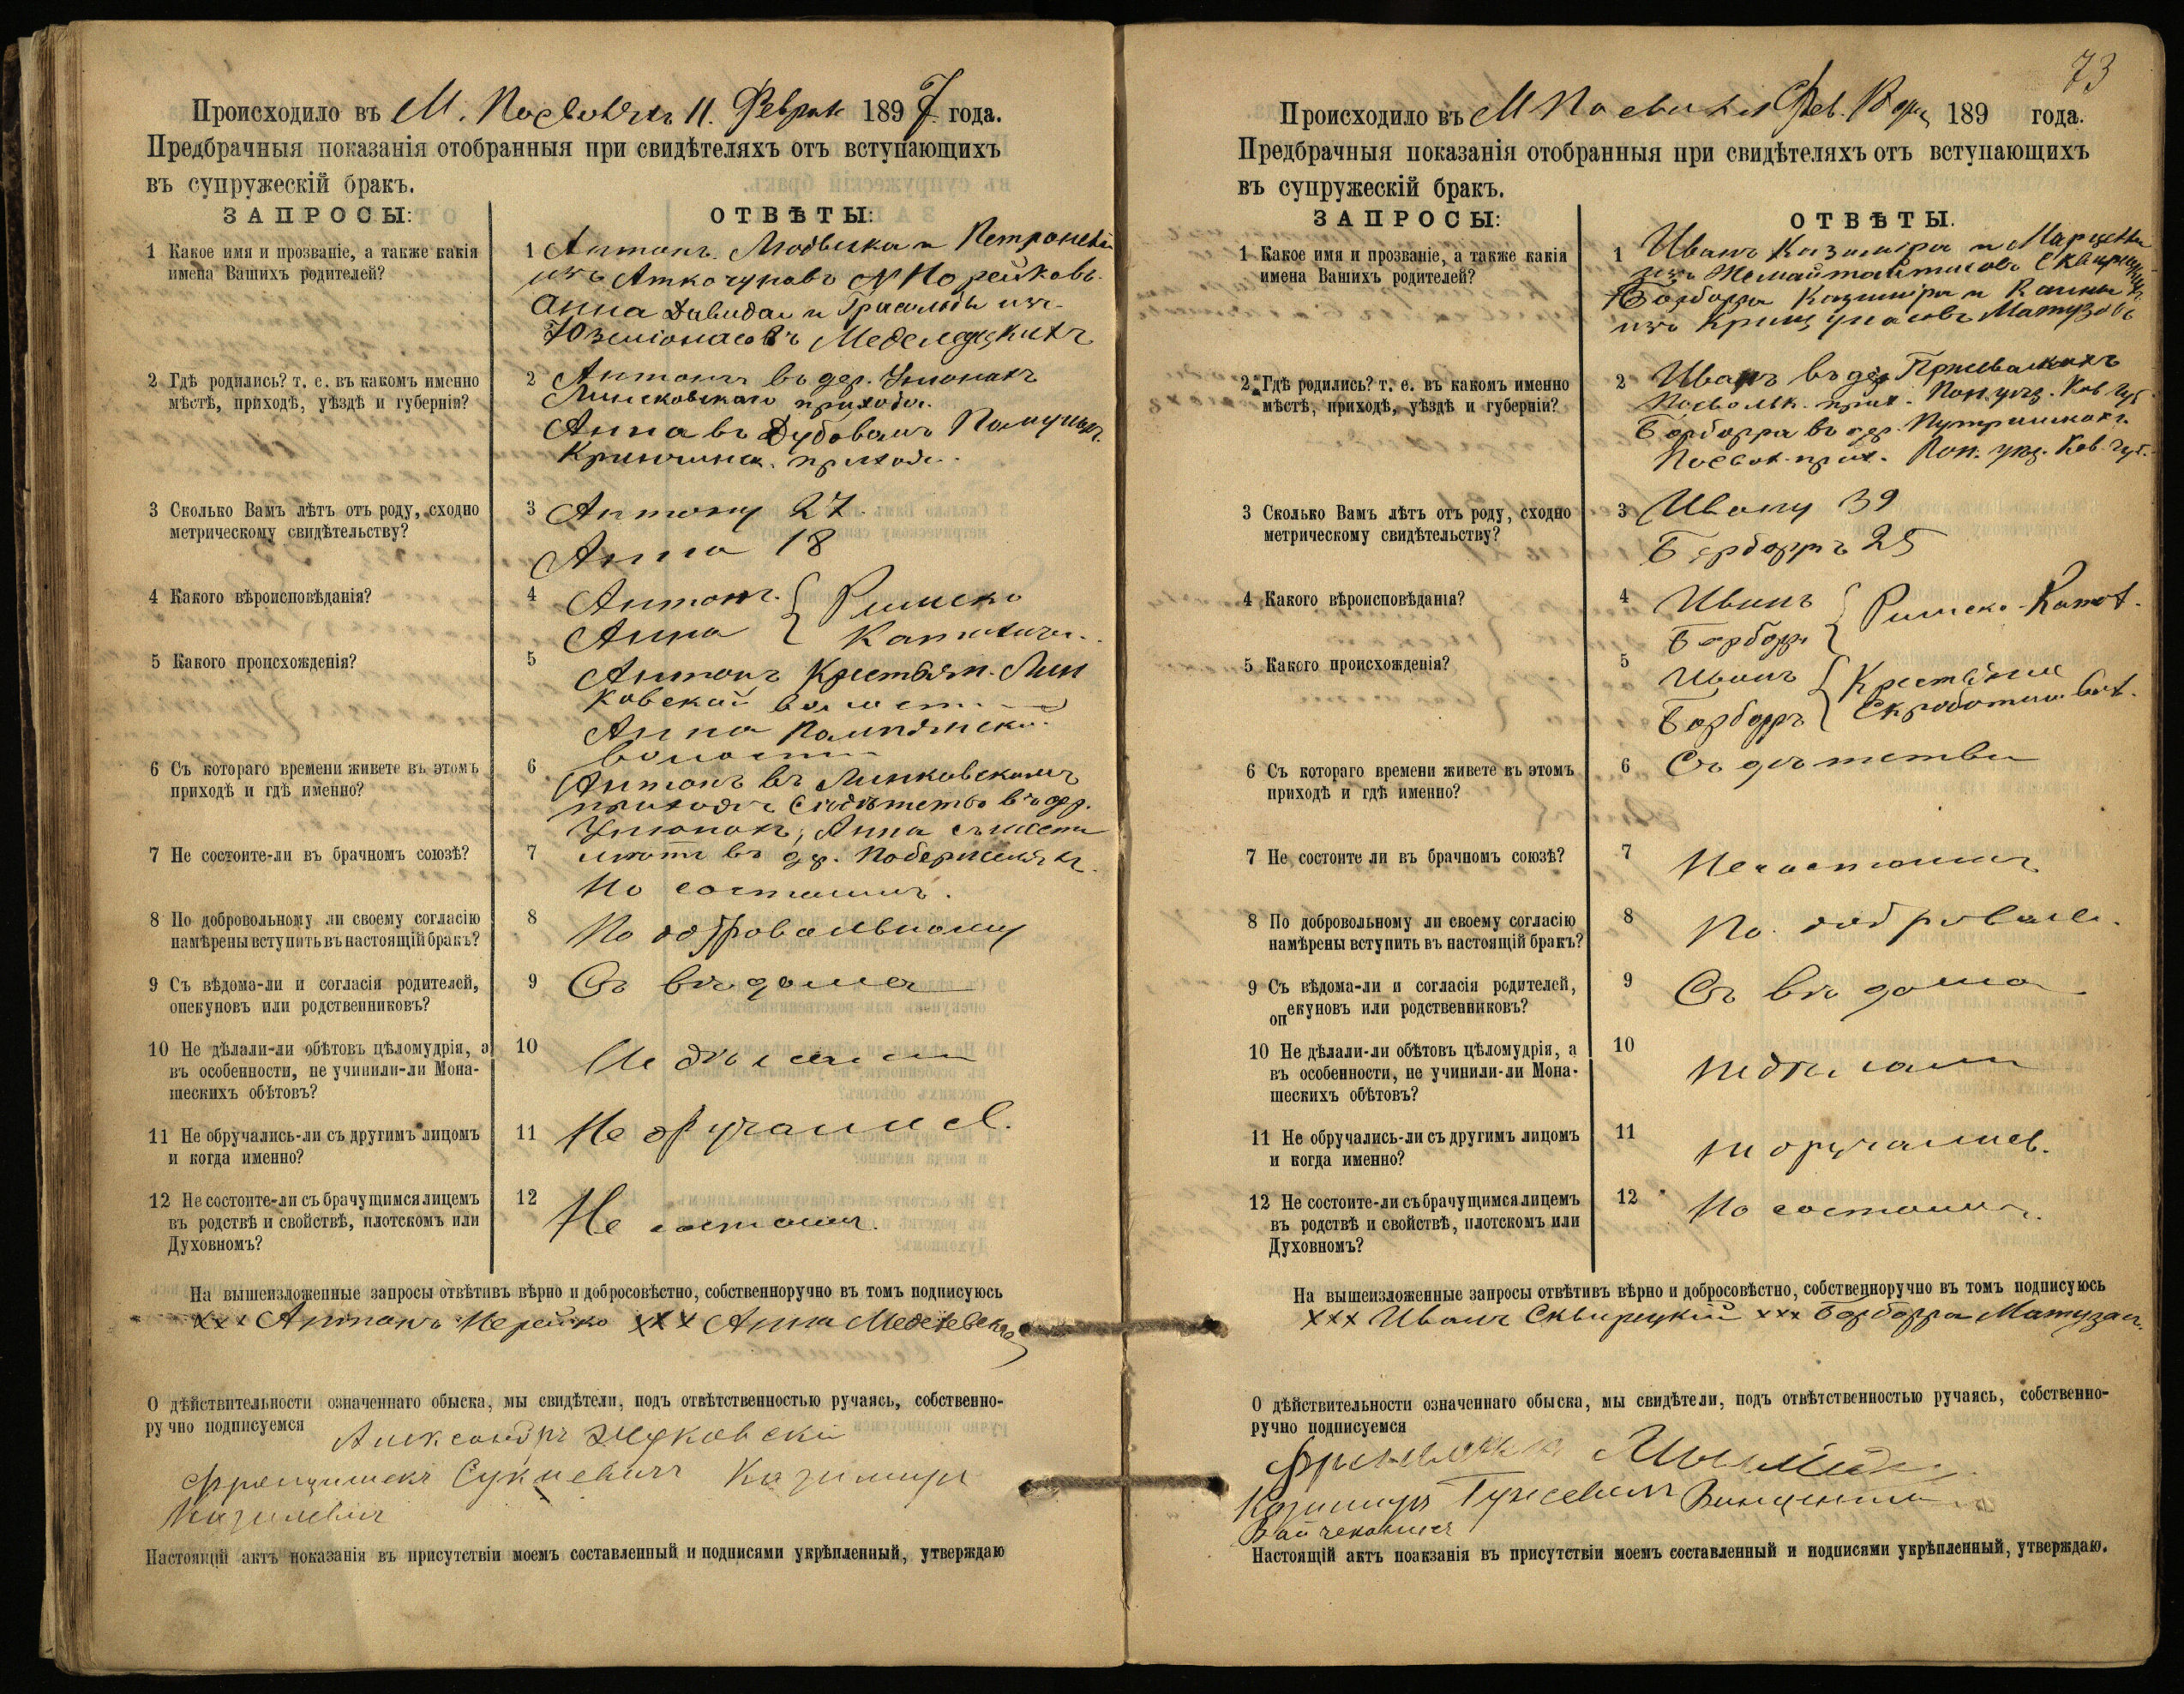 Происходило въ М. Посволѣ 11. Феврал 1897 года.
Предбрачныя показанія отобранныя при свидѣтеляхъ отъ вступающихъ
въ супружескій бракъ.
ЗАПРОСЫ:
ОТВѢТЫ:
1 Какое имя и прозваніе, а также какія
имена Вашихъ родителей?
1 Антонъ Людвика и Петронели
изъ Аткочунавъ
Анна Давида и изъ
2 Гдѣ родились? т. е. въ какомъ именно
мѣстѣ, приходѣ, уѣздѣ и губерніи?
2 Антонъ въ дер.
Линковскаго прихода.
Анна въ
прихода.
3 Сколько Вамъ лѣтъ отъ роду, сходно
метрическому свидѣтельству?
3 Антону 27.
Анна 18
4 Какого вѣроисповѣданія?
4 Антонъ Римско
Анна Католич.
5 Какого происхожденія?
5 Антонъ Крестьян. Лин
ковской волости
Анна
волости
6 Съ котораго времени живете въ этомъ
приходѣ и гдѣ именно?
6 Антонъ въ Линковскомъ
приходѣ въ дер.
Анна
7 Не состоите-ли въ брачномъ союзѣ?
7 въ дер.
Не состоимъ.
8 По добровольному ли своему согласію
намѣрены вступить въ настоящій бракъ?
8 По добровольному
9 Съ вѣдома-ли и согласія родителей,
опекуновъ или родственниковъ?
9 Съ вѣдома
10 Не дѣлали-ли обѣтовъ цѣломудрія, а
въ особенности, не учинили-ли Мона-
шескихъ обѣтовъ?
10 Не дѣлали
11 Не обручались-ли съ другимъ лицомъ
и когда именно?
11 Не обручались.
12 Не состоите-ли съ брачущимся лицемъ
въ родствѣ и свойствѣ, плотскомъ или
Духовномъ?
12 Не состоимъ.
На вышеизложенные запросы отвѣтивъ вѣрно и добросовѣстно, собственноручно въ томъ подписуюсь
ххх Антонъ Норейко ххх Анна
О дѣйствительности означеннаго обыска, мы свидѣтели, подъ отвѣтственностью ручаясь, собственно-
ручно подписуемся
Александръ Жуковскій
Францишекъ Казимиръ
Настоящій актъ показанія въ присутствіи моемъ составленный и подписями укрѣпленный, утверждаю
73
Происходило въ М Посволѣ Фев. 189 года.
Предбрачныя показанія отобранныя при свидѣтеляхъ отъ вступающихъ
въ супружескій бракъ.
ЗАПРОСЫ:
ОТВѢТЫ.
1 Какое имя и прозваніе, а также какія
имена Вашихъ родителей?
1 Иванъ Казимира и
изъ
Барбара Казимира и
изъ
2 Гдѣ родились? т. е. въ какомъ именно
мѣстѣ, приходѣ, уѣздѣ и губерніи?
2 Иванъ въ дер.
Посвольк. прих. Пон. уѣз. Ков. губ.
Барбарра въ дер.
Посвол. прих. Пон. уѣз. Ков. губ.
3 Сколько Вамъ лѣтъ отъ роду, сходно
метрическому свидѣтельству?
3 Ивану 39
Барбаррѣ 25
4 Какого вѣроисповѣданія?
4 Иванъ Римско-Катол.
Барбар.
5 Какого происхожденія?
5 Иванъ Крестьяне
Барбарръ вол.
6 Съ котораго времени живете въ этомъ
приходѣ и гдѣ именно?
6 Съ дѣтства
7 Не состоите ли въ брачномъ союзѣ?
7 Не состоимъ
8 По добровольному ли своему согласію
намѣрены вступить въ настоящій бракъ?
8 По добровол.
9 Съ вѣдома-ли и согласія родителей,
опекуновъ или родственниковъ?
9 Съ вѣдома
10 Не дѣлали-ли обѣтовъ цѣломудрія, а
въ особенности, не учинили-ли Мона-
шескихъ обѣтовъ?
10 Не дѣлали
11 Не обручались-ли съ другимъ лицомъ
и когда именно?
11 Не обручались.
12 Не состоите-ли съ брачущимся лицемъ
въ родствѣ и свойствѣ, плотскомъ или
Духовномъ?
12 Не состоимъ.
На вышеизложенные запросы отвѣтивъ вѣрно и добросовѣстно, собственноручно въ томъ подписуюсь
ххх Иванъ Сквирецкій ххх Барбарра
О дѣйствительности означеннаго обыска, мы свидѣтели, подъ отвѣтственностью ручаясь, собственно-
ручно подписуемся
Казимиръ Винцентій
Настоящій актъ поакзанія въ присутствіи моемъ составленный и подписями укрѣпленный, утверждаю.